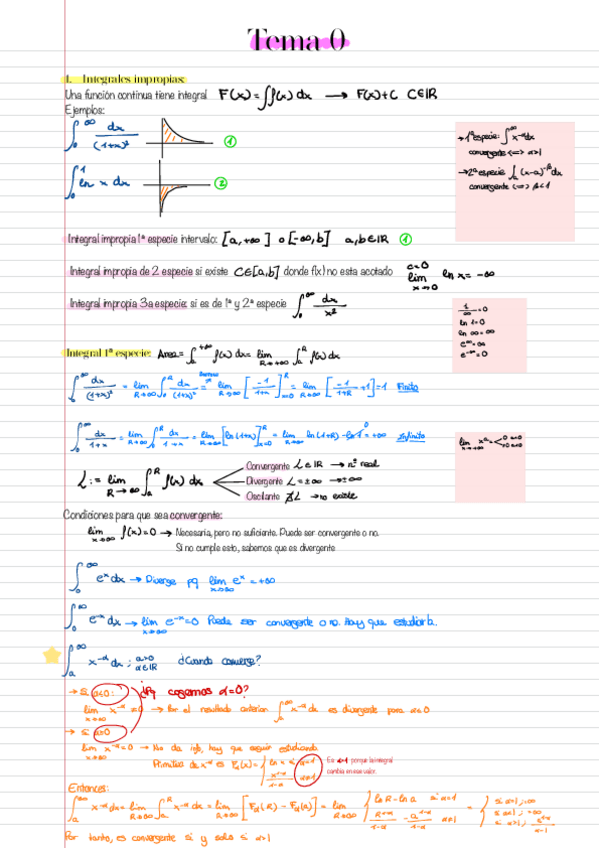 Tema 0
1. Integrales impropias:
Una función continua tiene integral F(x) = ∫f(x) dx → F(x)+C C∈ℝ
Ejemplos:
∫₀^∞ dx/(1+x)² ①
∫₀^1 ln x dx ②
→ 1ª especie: ∫^∞ x^-α dx
convergente <=> α>1
→ 2ª especie: ∫ (x-a)^-β dx
convergente <=> β<1
Integral impropia 1ª especie intervalo: [a,+∞] o [-∞,b] a,b∈ℝ ①
Integral impropia de 2 especie si existe C∈[a,b] donde f(x) no esta acotado c=0 lim x→0 ln x = -∞
Integral impropia 3a especie: si es de 1ª y 2ª especie ∫₀^∞ dx/x²
1/∞ = 0
ln 1=0
ln ∞=∞
e^∞=∞
e^-∞=0
Integral 1ª especie: Area= ∫_a^+∞ f(x) dx = lim R→+∞ ∫_a^R f(x) dx
∫₀^∞ dx/(1+x)² = lim R→∞ ∫₀^R dx/(1+x)² = lim R→∞ [-1/1+x]^R x=0 = lim R→∞ [-1/1+R +1] = 1 Finito
∫₀^∞ dx/1+x = lim R→∞ ∫₀^R dx/1+x = lim R→∞ [ln(1+x)]^R x=0 = lim R→∞ ln(1+R) - ln 1 = +∞ Infinito
L := lim R→∞ ∫_a^R f(x) dx
Convergente L∈ℝ → nº real
Divergente L=±∞ → ±∞
Oscilante ∄L → no existe
Condiciones para que sea convergente:
lim x→∞ f(x)=0 → Necesaria, pero no suficiente. Puede ser convergente o no.
Si no cumple esto, sabemos que es divergente
∫₀^∞ e^x dx → Diverge pq lim x→∞ e^x = +∞
∫₀^∞ e^-x dx → lim x→∞ e^-x = 0 Puede ser convergente o no. Hay que estudiarla.
∫_a^∞ x^-α dx ; a>0 α∈ℝ ¿Cuando converge?
→ Si α≤0: ¿Pq cogemos α=0?
lim x→∞ x^-α ≠ 0 → Por el resultado anterior ∫_a^∞ x^-α dx es divergente para α≤0
→ Si α>0
lim x→∞ x^-α = 0 → No da info, hay que seguir estudiando
Primitiva de x^-α es F_α(x) = { ln x si α=1
x^1-α/1-α α≠1
Es α=1 porque la integral
cambia en ese valor.
Entonces:
∫_a^∞ x^-α dx = lim R→∞ ∫_a^R x^-α dx = lim R→∞ [F_α(R) - F_α(a)] = lim R→∞ { ln R - ln a si α=1
Por tanto, es convergente si y solo si α>1